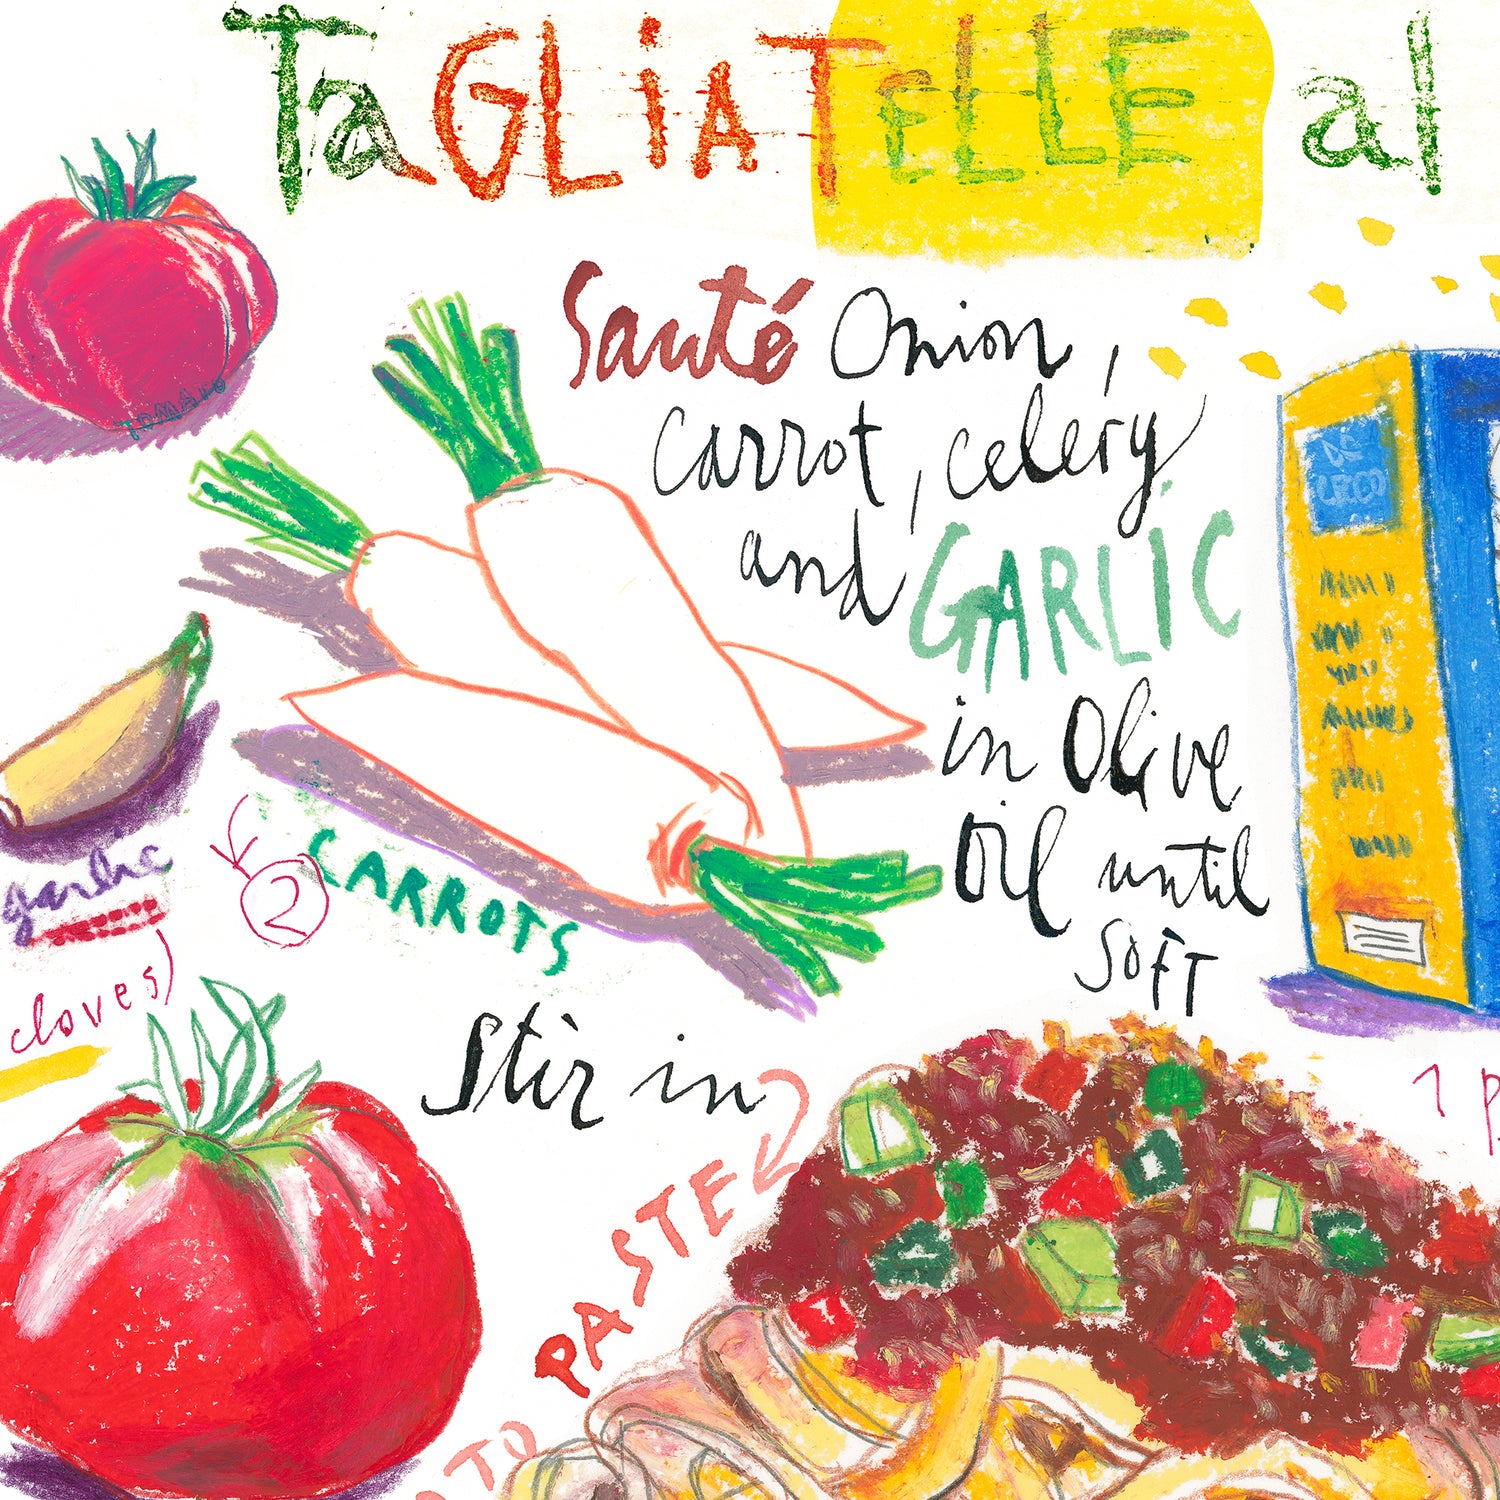 TaGLiATELLE al
TOMATO
Sauté Onion,
carrot, celery
and GARLIC
in Olive
Oil until
SOFT
DE
CECO
garlic
cloves)
2 CARROTS
Stir in
TO PASTE
1 p